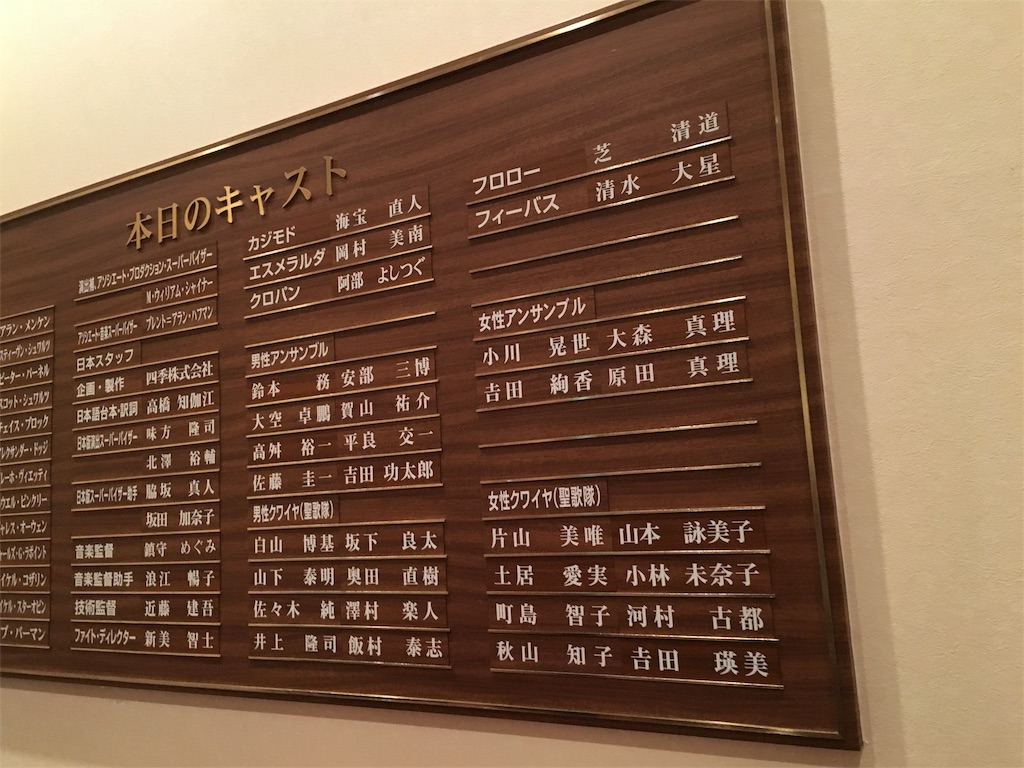 本日のキャスト
アラン・メンケン
スティーヴン・シュワルツ
ピーター・パーネル
スコット・シュワルツ
チェイス・ブロック
レクサンダー・ドッジ
レーホ・ヴィエッティ
ウエル・ビンクリー
ャレス・オーウェン
ールズ・G・ラポイント
イケル・コザリン
イケル・スターオビン
ブ・バーマン
演出補、アソシエート・プロダクション・スーパーバイザー
M・ウィリアム・シャイナー
アソシエート・音楽スーパーバイザー ブレント＝アラン・ハフマン
日本スタッフ
企画・製作 四季株式会社
日本語台本・訳詞 高橋 知伽江
日本版演出スーパーバイザー 味方 隆司
北澤 裕輔
日本版スーパーバイザー助手 脇坂 真人
坂田 加奈子
音楽監督 鎮守 めぐみ
音楽監督助手 浪江 暢子
技術監督 近藤 建吾
ファイト・ディレクター 新美 智士
カジモド 海宝 直人
エスメラルダ 岡村 美南
クロパン 阿部 よしつぐ
男性アンサンブル
鈴本 務 安部 三博
大空 卓鵬 賀山 祐介
高舛 裕一 平良 交一
佐藤 圭一 吉田 功太郎
男性クワイヤ(聖歌隊)
白山 博基 坂下 良太
山下 泰明 奥田 直樹
佐々木 純 澤村 楽人
井上 隆司 飯村 泰志
フロロー 芝 清道
フィーバス 清水 大星
女性アンサンブル
小川 晃世 大森 真理
吉田 絢香 原田 真理
女性クワイヤ(聖歌隊)
片山 美唯 山本 詠美子
土居 愛実 小林 未奈子
町島 智子 河村 古都
秋山 知子 吉田 瑛美